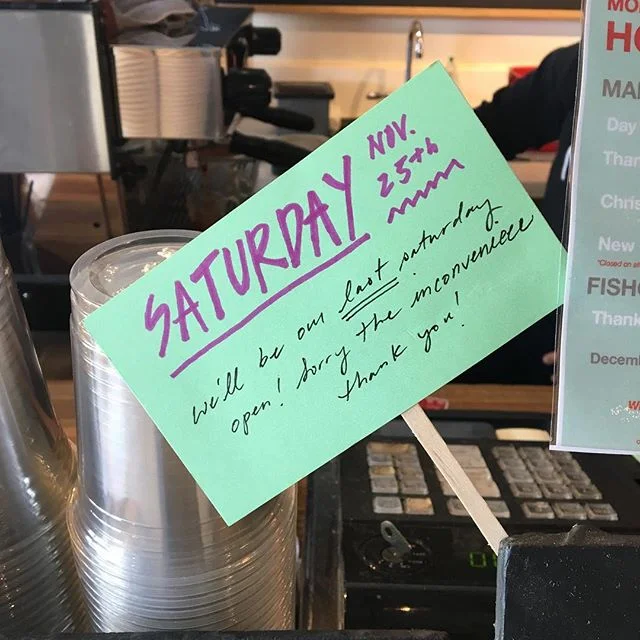 SATURDAY NOV.
25th
we'll be our last saturday
open! Sorry the inconvenience
thank you!
MO
HO
MA
Day
Than
Chris
New
FISH
Thank
Decem